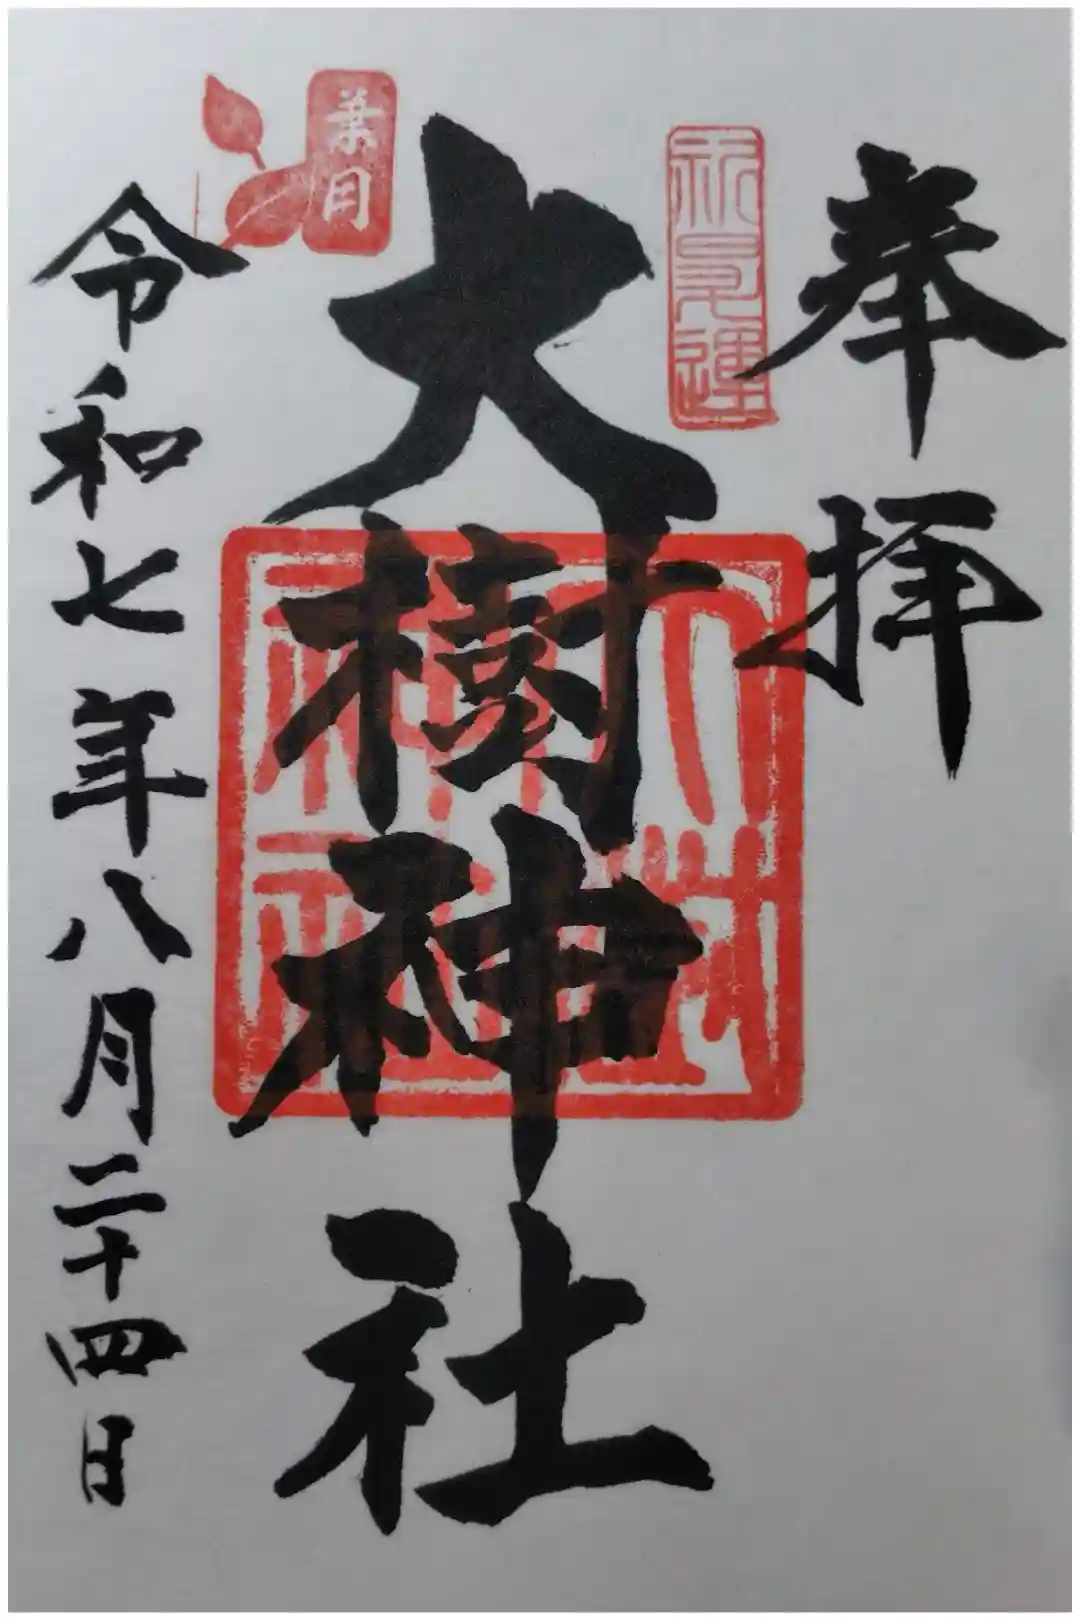 奉拝
大樹神社
葉月
令和七年八月二十四日